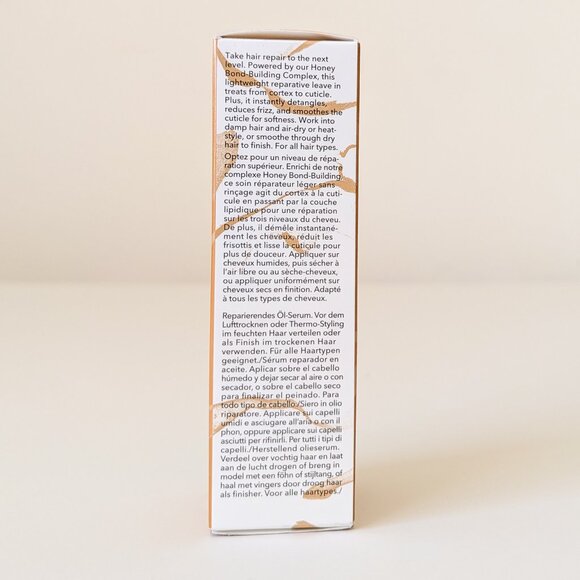 Take hair repair to the next
level. Powered by our Honey
Bond-Building Complex, this
lightweight reparative leave in
treats from cortex to cuticle.
Plus, it instantly detangles,
reduces frizz, and smoothes the
cuticle for softness. Work into
damp hair and air-dry or heat-
style, or smooth through dry
hair to finish. For all hair types.
Optez pour un niveau de répa-
ration supérieur. Enrichi de notre
complexe Honey Bond-Building,
ce soin réparateur léger sans
rinçage agit du cortex à la cuti-
cule en passant par la couche
lipidique pour une réparation
sur les trois niveaux du cheveu.
De plus, il démêle instantané-
ment les cheveux, réduit les
frisottis et lisse la cuticule pour
plus de douceur. Appliquer sur
cheveux humides, puis sécher à
l'air libre ou au sèche-cheveux,
ou appliquer uniformément sur
cheveux secs en finition. Adapté
à tous les types de cheveux.
Reparierendes Öl-Serum. Vor dem
Lufttrocknen oder Thermo-Styling
im feuchten Haar verteilen oder
als Finish im trockenen Haar
verwenden. Für alle Haartypen
geeignet./Sérum reparador en
aceite. Aplicar sobre el cabello
húmedo y dejar secar al aire o con
secador, o sobre el cabello seco
para finalizar el peinado. Para
todo tipo de cabello./Siero in olio
riparatore. Applicare sui capelli
umidi e asciugare all'aria o con il
phon, oppure applicare sui capelli
asciutti per rifinirli. Per tutti i tipi di
capelli./Herstellend olieserum.
Verdeel over vochtig haar en laat
aan de lucht drogen of breng in
model met een föhn of stijltang, of
haal met vingers door droog haar
als finisher. Voor alle haartypes./